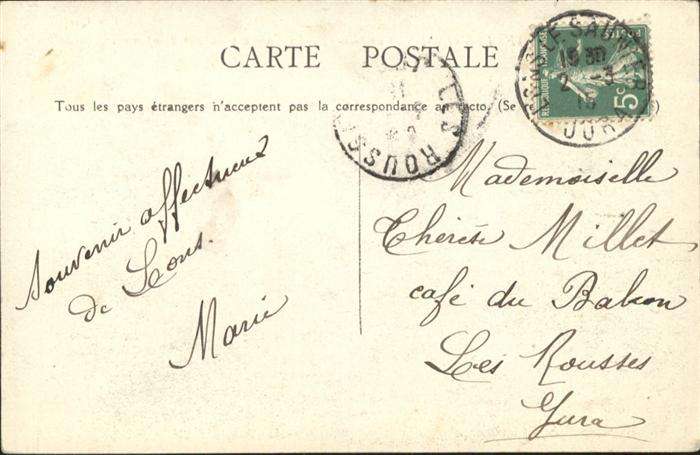 CARTE POSTALE
Tous les pays étrangers n'acceptent pas la correspondance au recto. (Se
Souvenir affectueux
de Lons.
Marie
Mademoiselle
Thérèse Millet
café du Balcon
Les Rousses
Jura
LES ROUSSES
LE SAUNIER
15 30
2 -3
JURA
5c